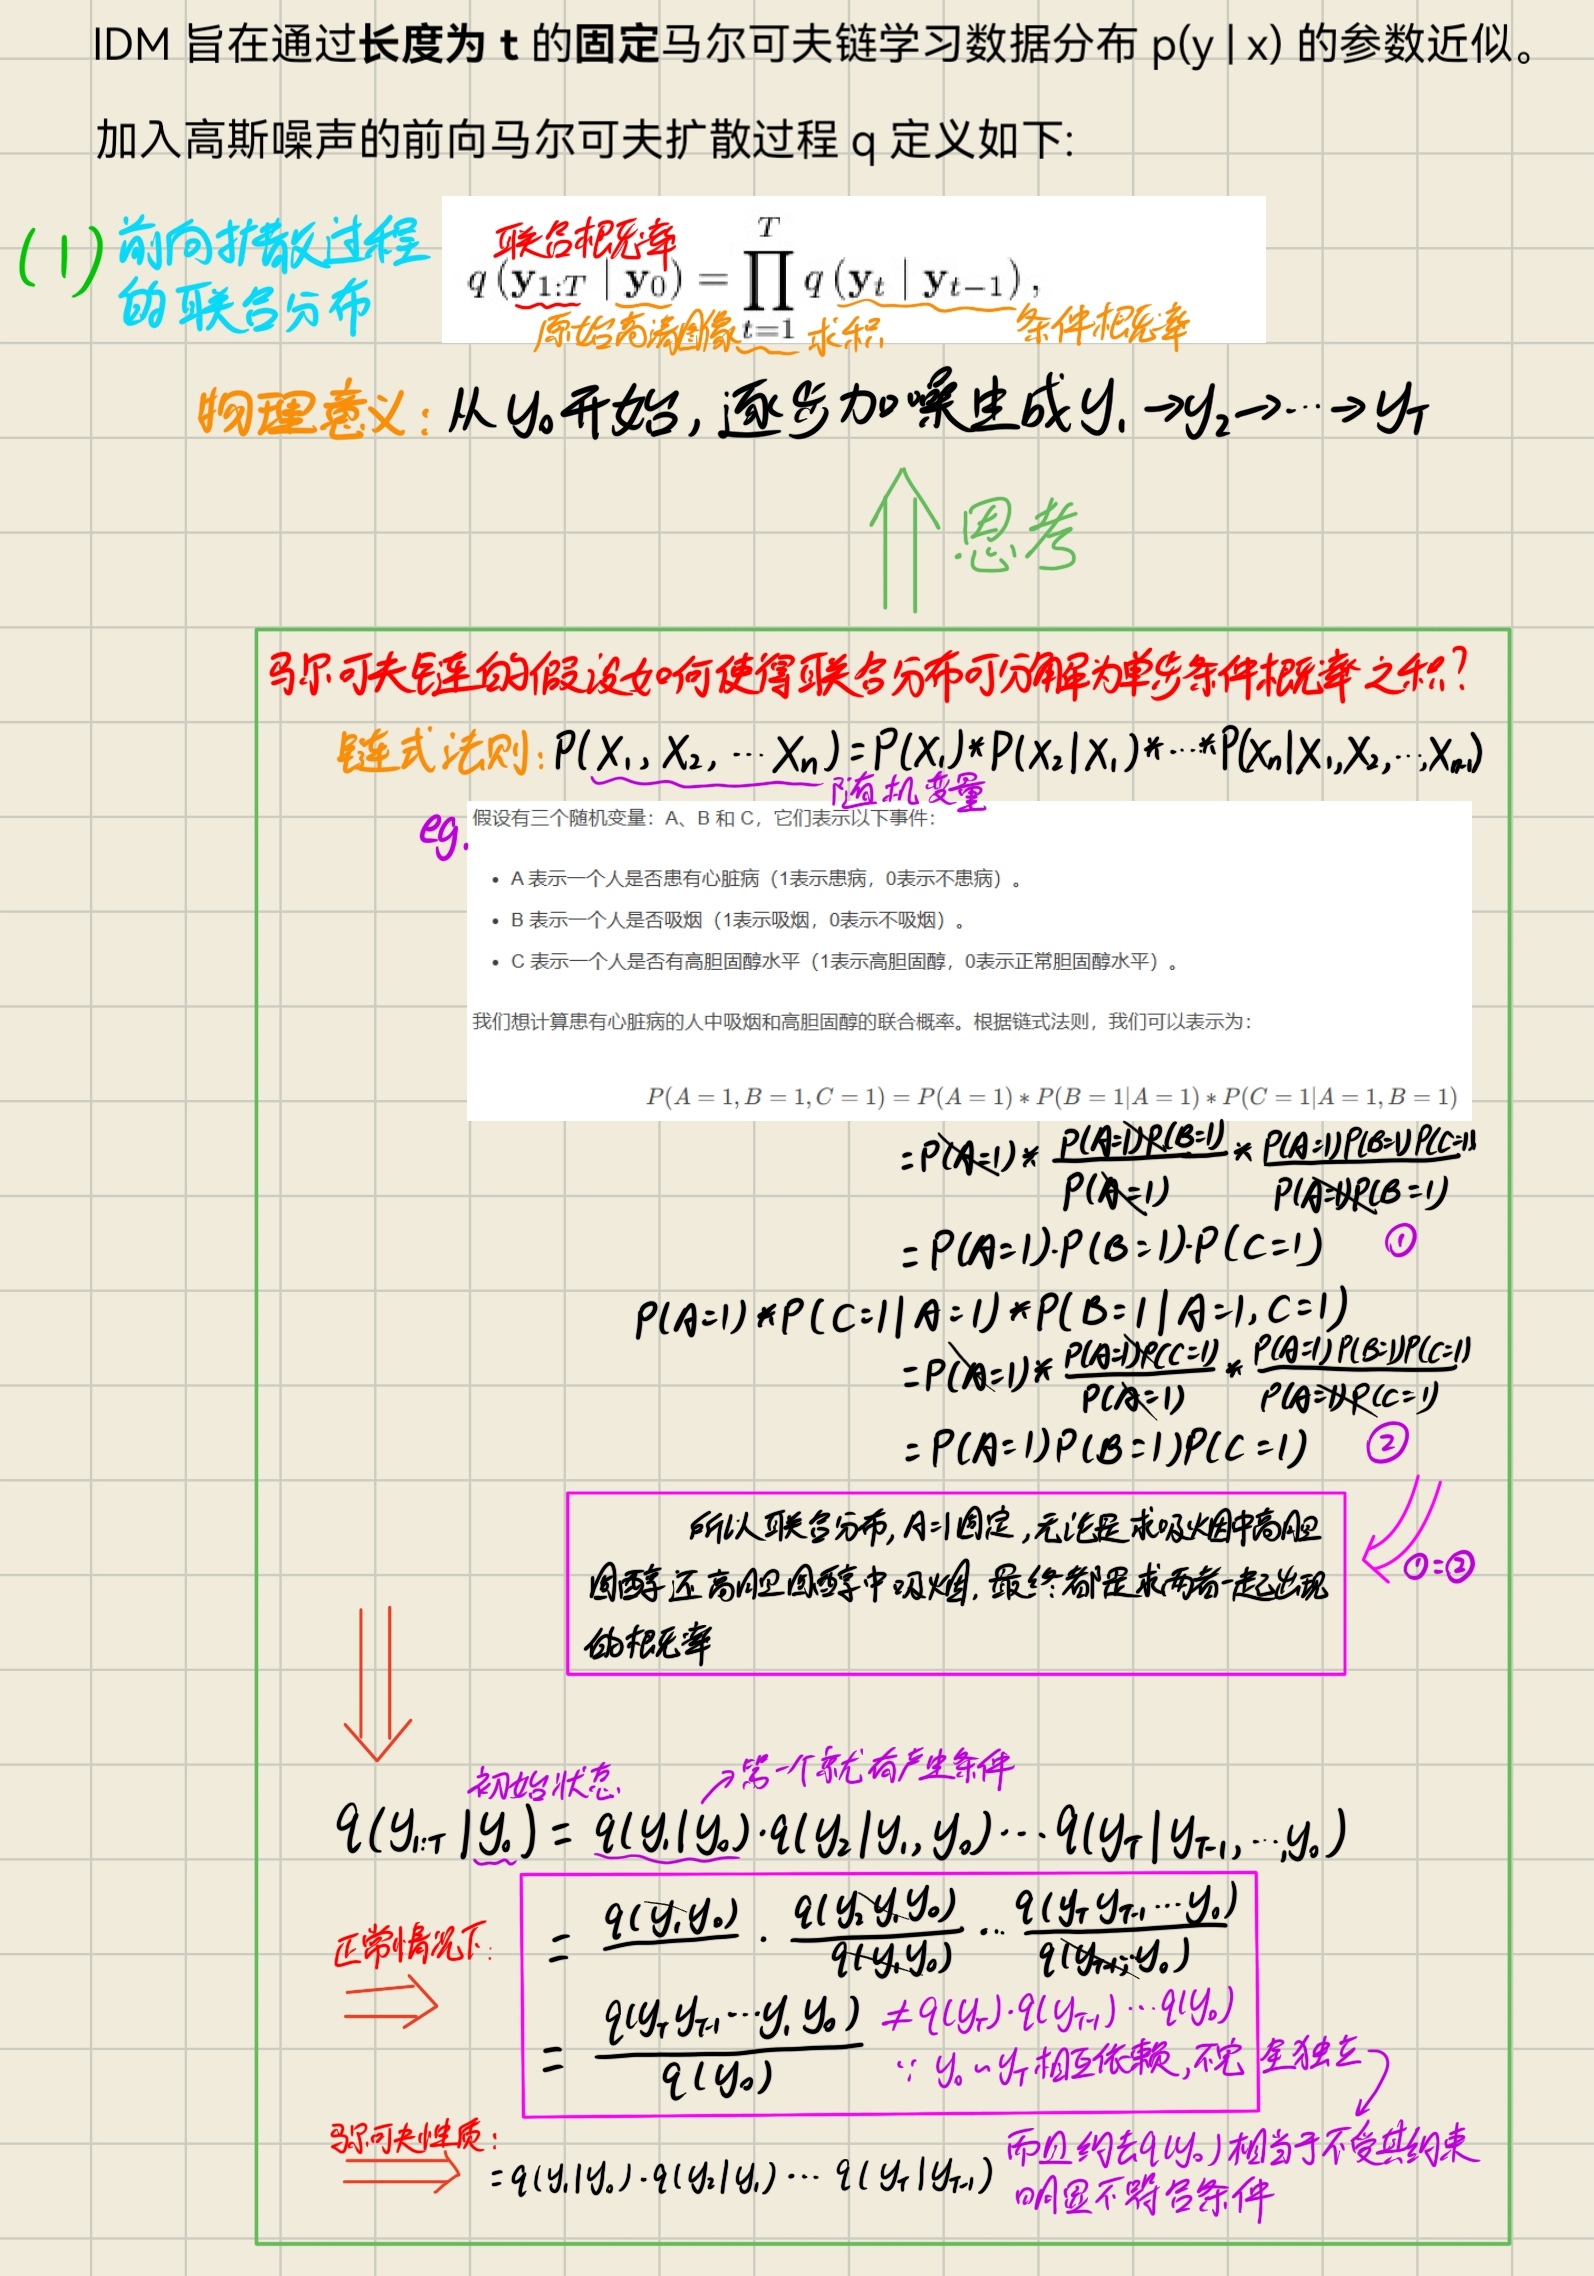 IDM 旨在通过长度为 t 的固定马尔可夫链学习数据分布 p(y | x) 的参数近似。
加入高斯噪声的前向马尔可夫扩散过程 q 定义如下:
(1) 前向扩散过程
的联合分布
联合概率
q(y₁:T | y₀) = ∏ₜ₌₁ᵀ q(yₜ | yₜ₋₁),
原始高清图像 求积 条件概率
物理意义: 从y₀开始, 逐步加噪生成y₁→y₂→…→y_T
思考
马尔可夫链的假设如何使得联合分布可分解为单步条件概率之积?
链式法则: P(X₁, X₂, … Xₙ) = P(X₁)*P(X₂|X₁)*…*P(Xₙ|X₁,X₂,…,Xₙ₋₁)
随机变量
eg.
假设有三个随机变量：A、B 和 C，它们表示以下事件：
• A 表示一个人是否患有心脏病（1表示患病，0表示不患病）。
• B 表示一个人是否吸烟（1表示吸烟，0表示不吸烟）。
• C 表示一个人是否有高胆固醇水平（1表示高胆固醇，0表示正常胆固醇水平）。
我们想计算患有心脏病的人中吸烟和高胆固醇的联合概率。根据链式法则，我们可以表示为：
P(A = 1, B = 1, C = 1) = P(A = 1) * P(B = 1|A = 1) * P(C = 1|A = 1, B = 1)
= P(A=1) * P(A=1)P(B=1) / P(A=1) * P(A=1)P(B=1)P(C=1) / P(A=1)P(B=1)
= P(A=1)·P(B=1)·P(C=1) ①
P(A=1) * P(C=1|A=1) * P(B=1|A=1, C=1)
= P(A=1) * P(A=1)P(C=1) / P(A=1) * P(A=1)P(B=1)P(C=1) / P(A=1)P(C=1)
= P(A=1)P(B=1)P(C=1) ②
①=②
所以联合分布, A=1固定, 无论是求吸烟中高胆
固醇还高胆固醇中吸烟, 最终都是求两者一起出现
的概率
初始状态 →第一个就有产生条件
q(y₁:T | y₀) = q(y₁|y₀)·q(y₂|y₁, y₀)…q(y_T|y_T-1, …, y₀)
正常情况下:
= q(y₁y₀) · q(y₂y₁y₀) / q(y₁y₀) … q(y_T y_T-1…y₀) / q(y_T-1…y₀)
= q(y_T y_T-1…y₁y₀) / q(y₀) ≠ q(y_T)·q(y_T-1)…q(y₀)
∵ y₀~y_T相互依赖, 不完全独立
而且约去q(y₀)相当于不受其约束
明显不符合条件
马尔可夫性质:
= q(y₁|y₀)·q(y₂|y₁)… q(y_T|y_T-1)